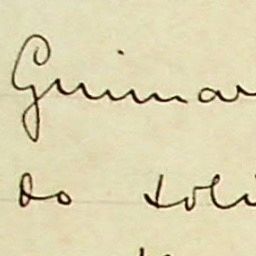 Guimar
do soli